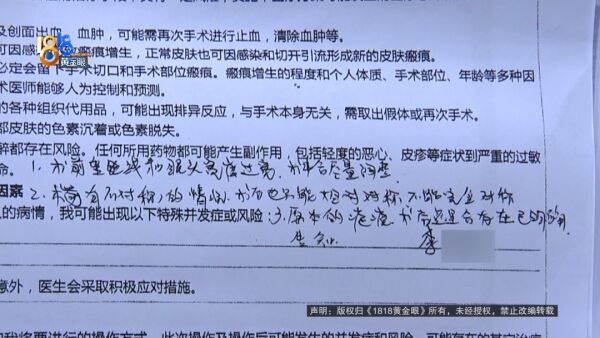 及创面出血、血肿，可能需再次手术进行止血，清除血肿等。
1818黄金眼
可因感 瘢痕增生，正常皮肤也可因感染和切开引流形成新的皮肤瘢痕。
必定会留下手术切口和手术部位瘢痕。瘢痕增生的程度和个人体质、手术部位、年龄等多种因
术医师能够人为控制和预测。
的各种组织代用品，可能出现排异反应，与手术本身无关，需取出假体或再次手术。
部皮肤的色素沉着或色素脱失。
醉都存在风险。任何所用药物都可能产生副作用，包括轻度的恶心、皮疹等症状到严重的过敏
命。1、术前 和眉头 过 术中尽量调整
因素 2、术前有不对称的情况 术后也只能相对对称 不能完全对称
人的病情，我可能出现以下特殊并发症或风险：3、原本的疤痕 术后还是会存在
告知 李
意外，医生会采取积极应对措施。
声明：版权归《1818黄金眼》所有，未经授权，禁止改编转载
和我将要进行的操作方式、此次操作及操作后可能发生的并发症和风险、可能存在的其它治疗